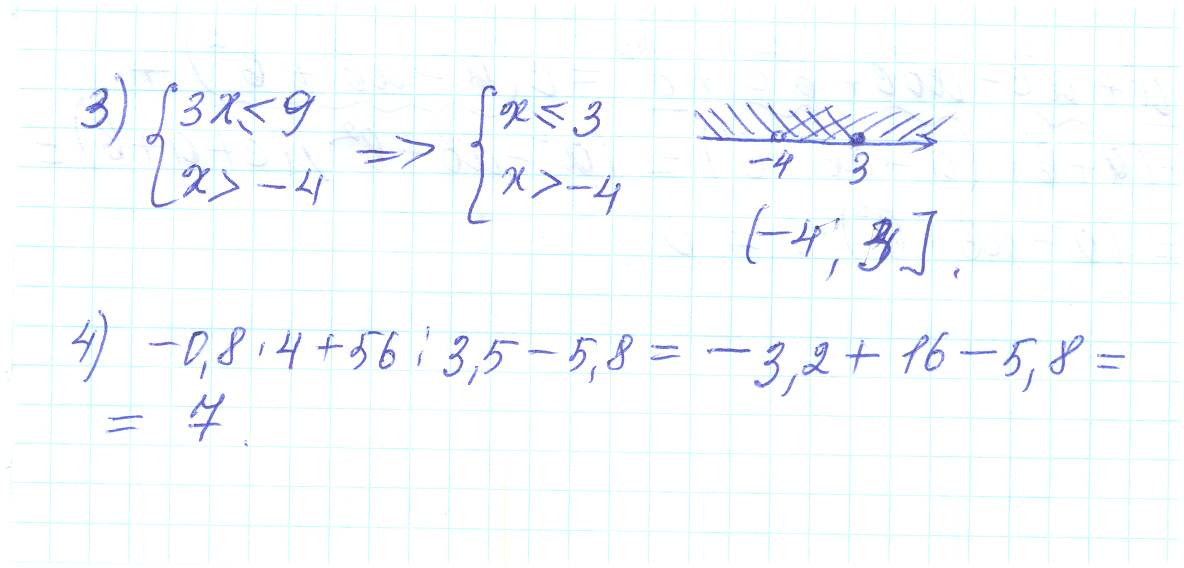 3) { 3x ≤ 9 => { x ≤ 3
x > -4 x > -4
-4 3
(-4; 3].
4) -0,8·4+56:3,5-5,8= -3,2+16-5,8=
= 7.